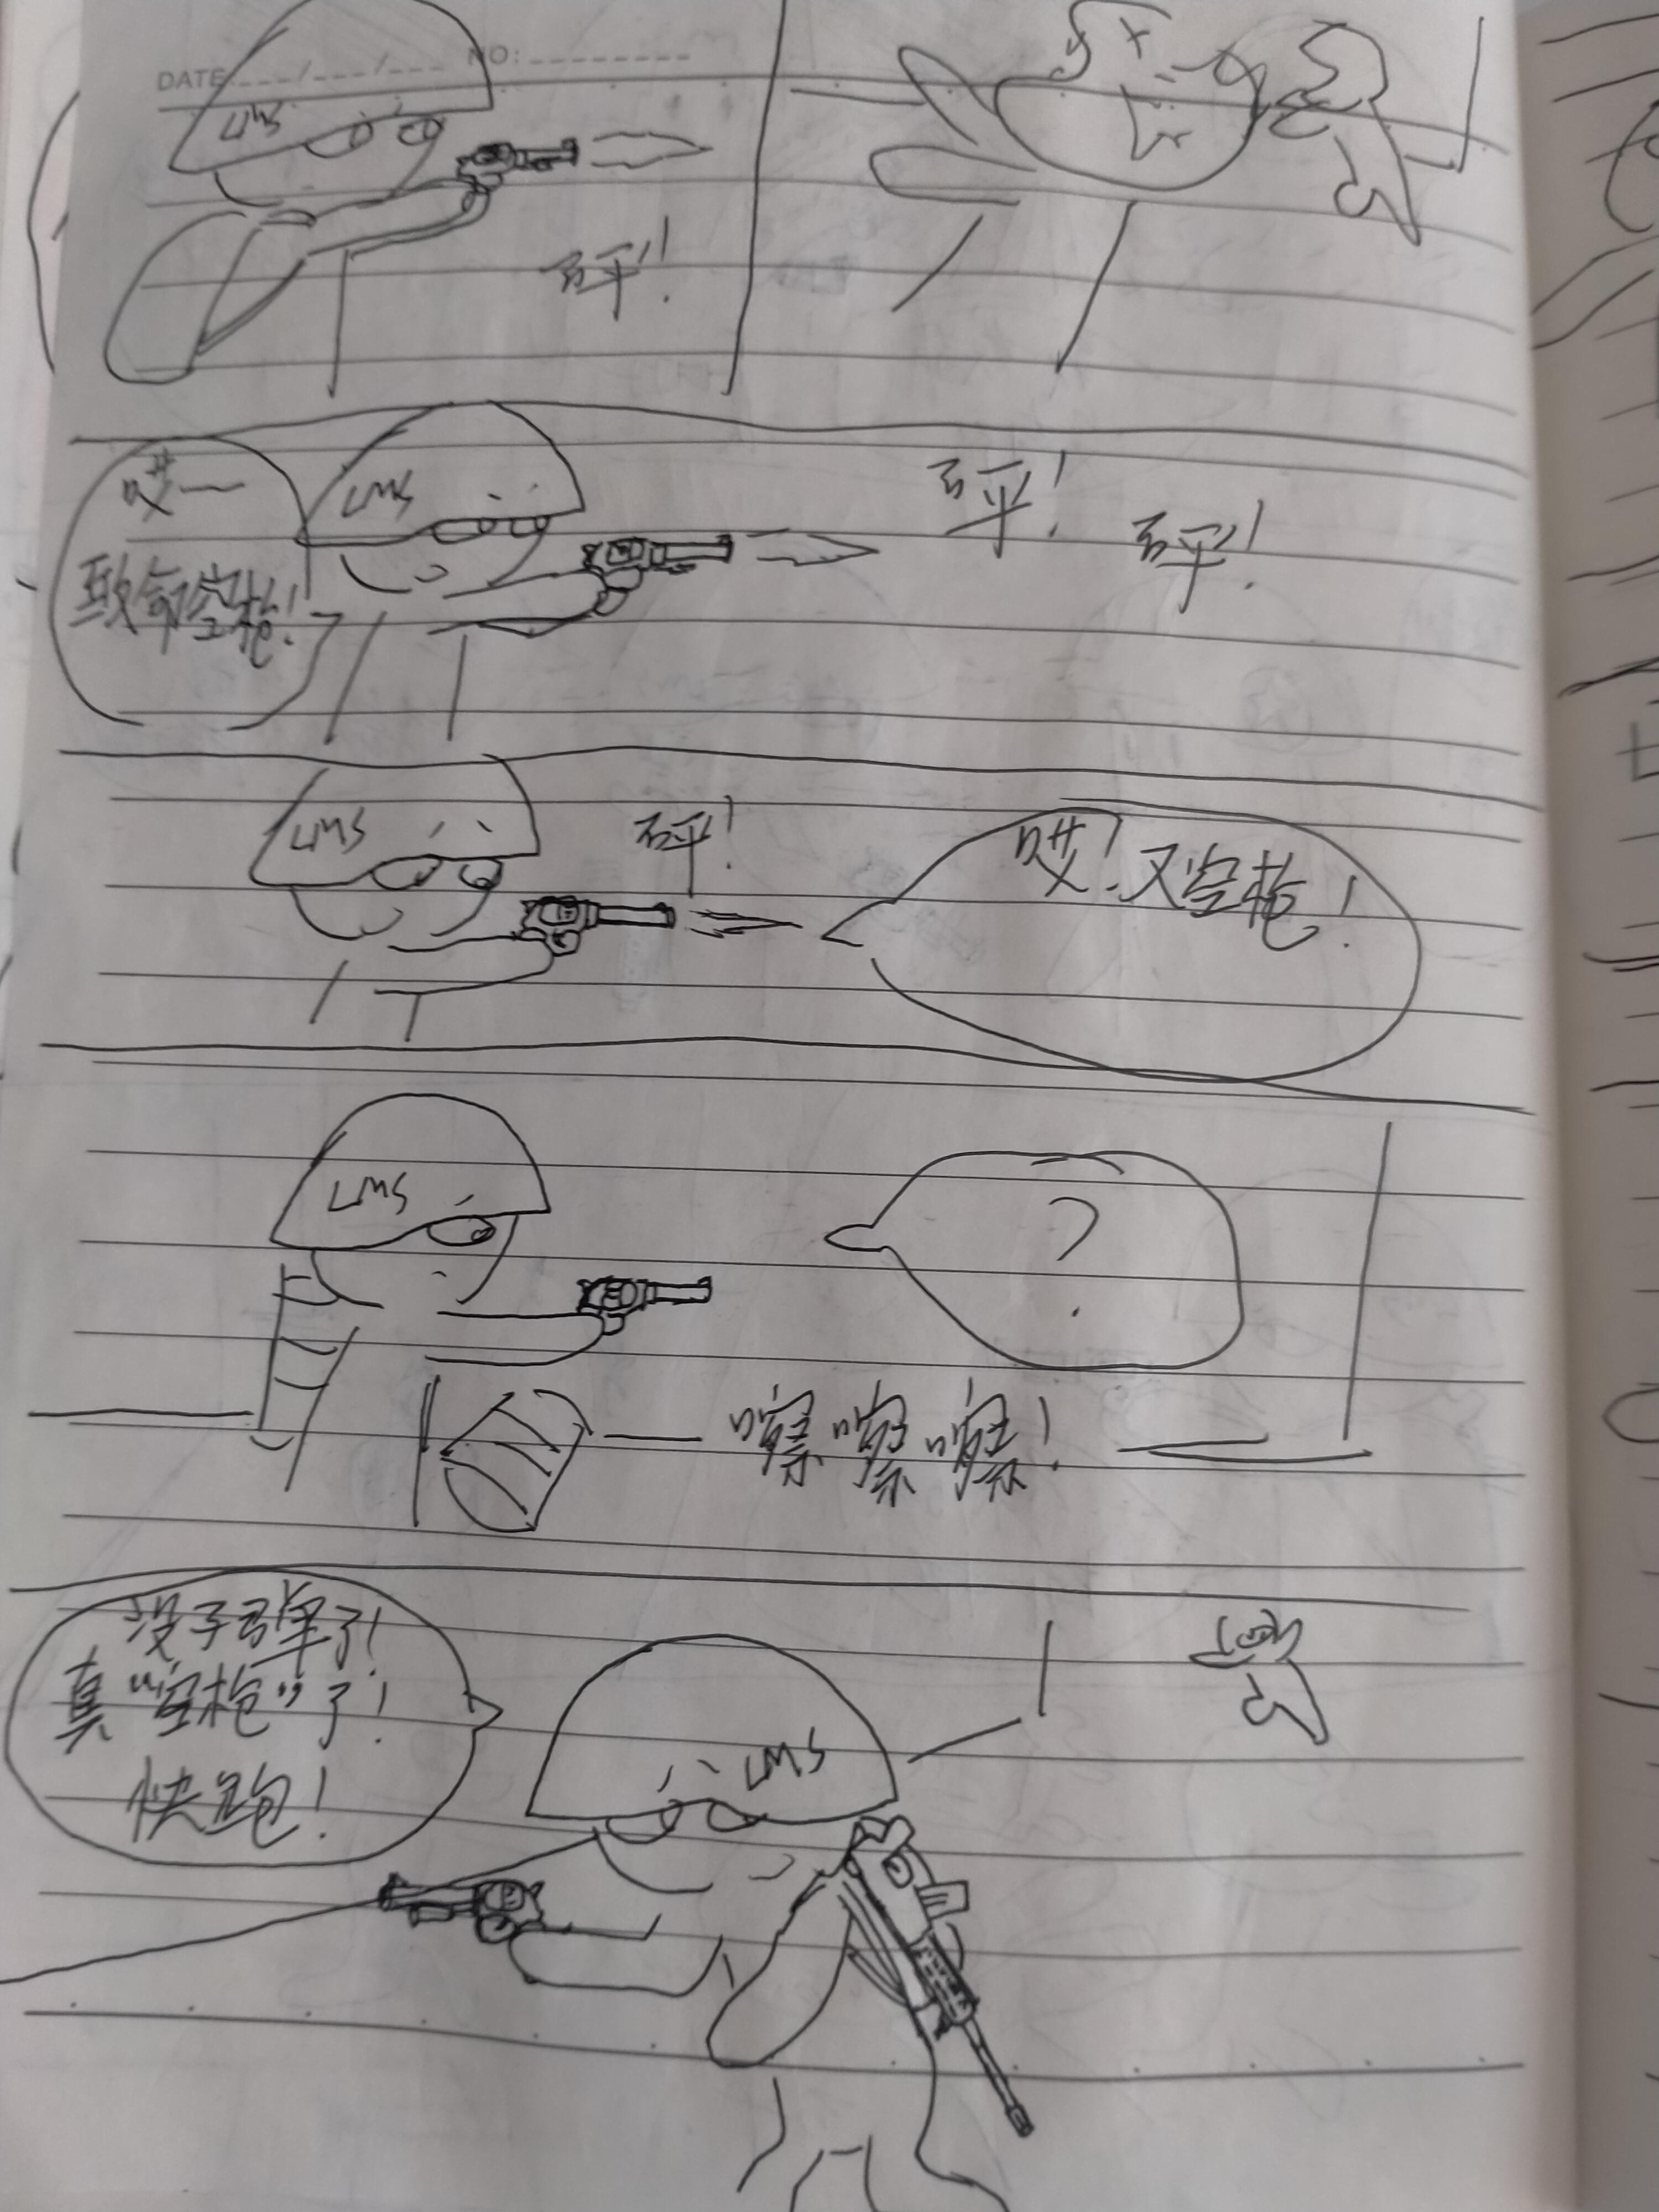 DATE ___/___/___ NO:________
LMS
砰!
哎—
致命空枪!
LMS
砰!
砰!
LMS
砰!
哎!又空枪!
LMS
?
嚓嚓嚓!
没子弹了!
真“空枪”了!
快跑!
LMS